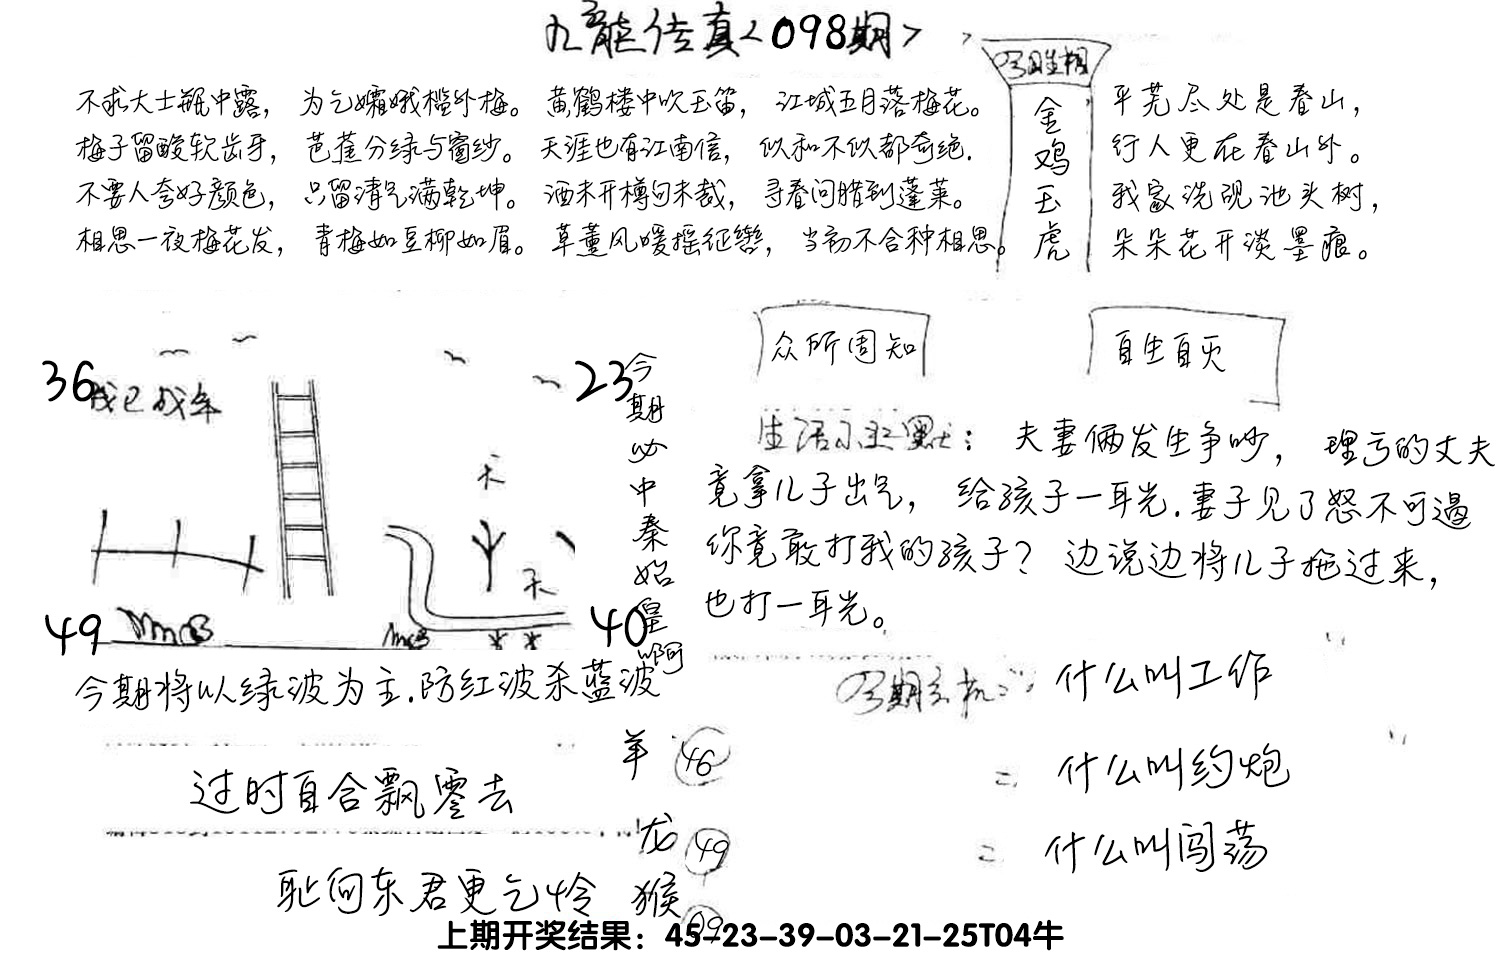 九龙传真<098期>
今日生相
金鸡玉虎
不求大士瓶中露，为乞孀娥槛外梅。黄鹤楼中吹玉笛，江城五月落梅花。
梅子留酸软齿牙，芭蕉分绿与窗纱。天涯也有江南信，似和不似都奇绝.
不要人夸好颜色，只留清气满乾坤。酒未开樽句未裁，寻春问腊到蓬莱。
相思一夜梅花发，青梅如豆柳如眉。草薰风暖摇征辔，当初不合种相思。
平芜尽处是春山，
行人更在春山外。
我家洗砚池头树，
朵朵花开淡墨痕。
众所周知
自生自灭
36
23
49
40
天
天
今期必中秦始皇啊
生活小幽默：夫妻俩发生争吵，理亏的丈夫
竟拿儿子出气，给孩子一耳光.妻子见了怒不可遏
你竟敢打我的孩子？边说边将儿子拖过来，
也打一耳光。
今期将以绿波为主.防红波杀蓝波
过时自合飘零去
耻向东君更乞怜
羊 46
龙 49
猴 09
今期玄机：什么叫工作
什么叫约炮
什么叫闯荡
上期开奖结果：45-23-39-03-21-25T04牛